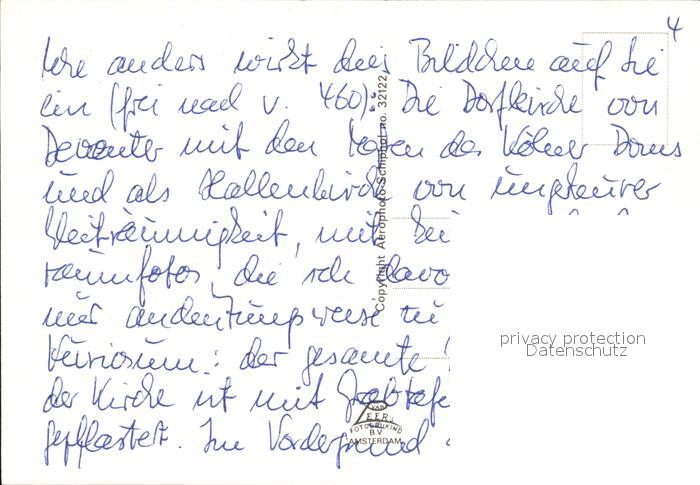 4
Wie anders wirkt dies Bildchen auf Sie
ein (frei nach v. 460): Die Dorfkirche von
Deventer mit den des Kölner Doms
und als Hallenkirche von ungeheurer
Weiträumigkeit, mit
raumfotos, die ich davo
nur andeutungsweise
Kuriosum: der gesamte
der Kirche ist mit Grabtafe
gepflastert. Im Vordergrund
Copyright Aerophoto-Schiphol no. 32122
privacy protection
Datenschutz
VAN
LEER
FOTODRUKIND
B.V.
AMSTERDAM